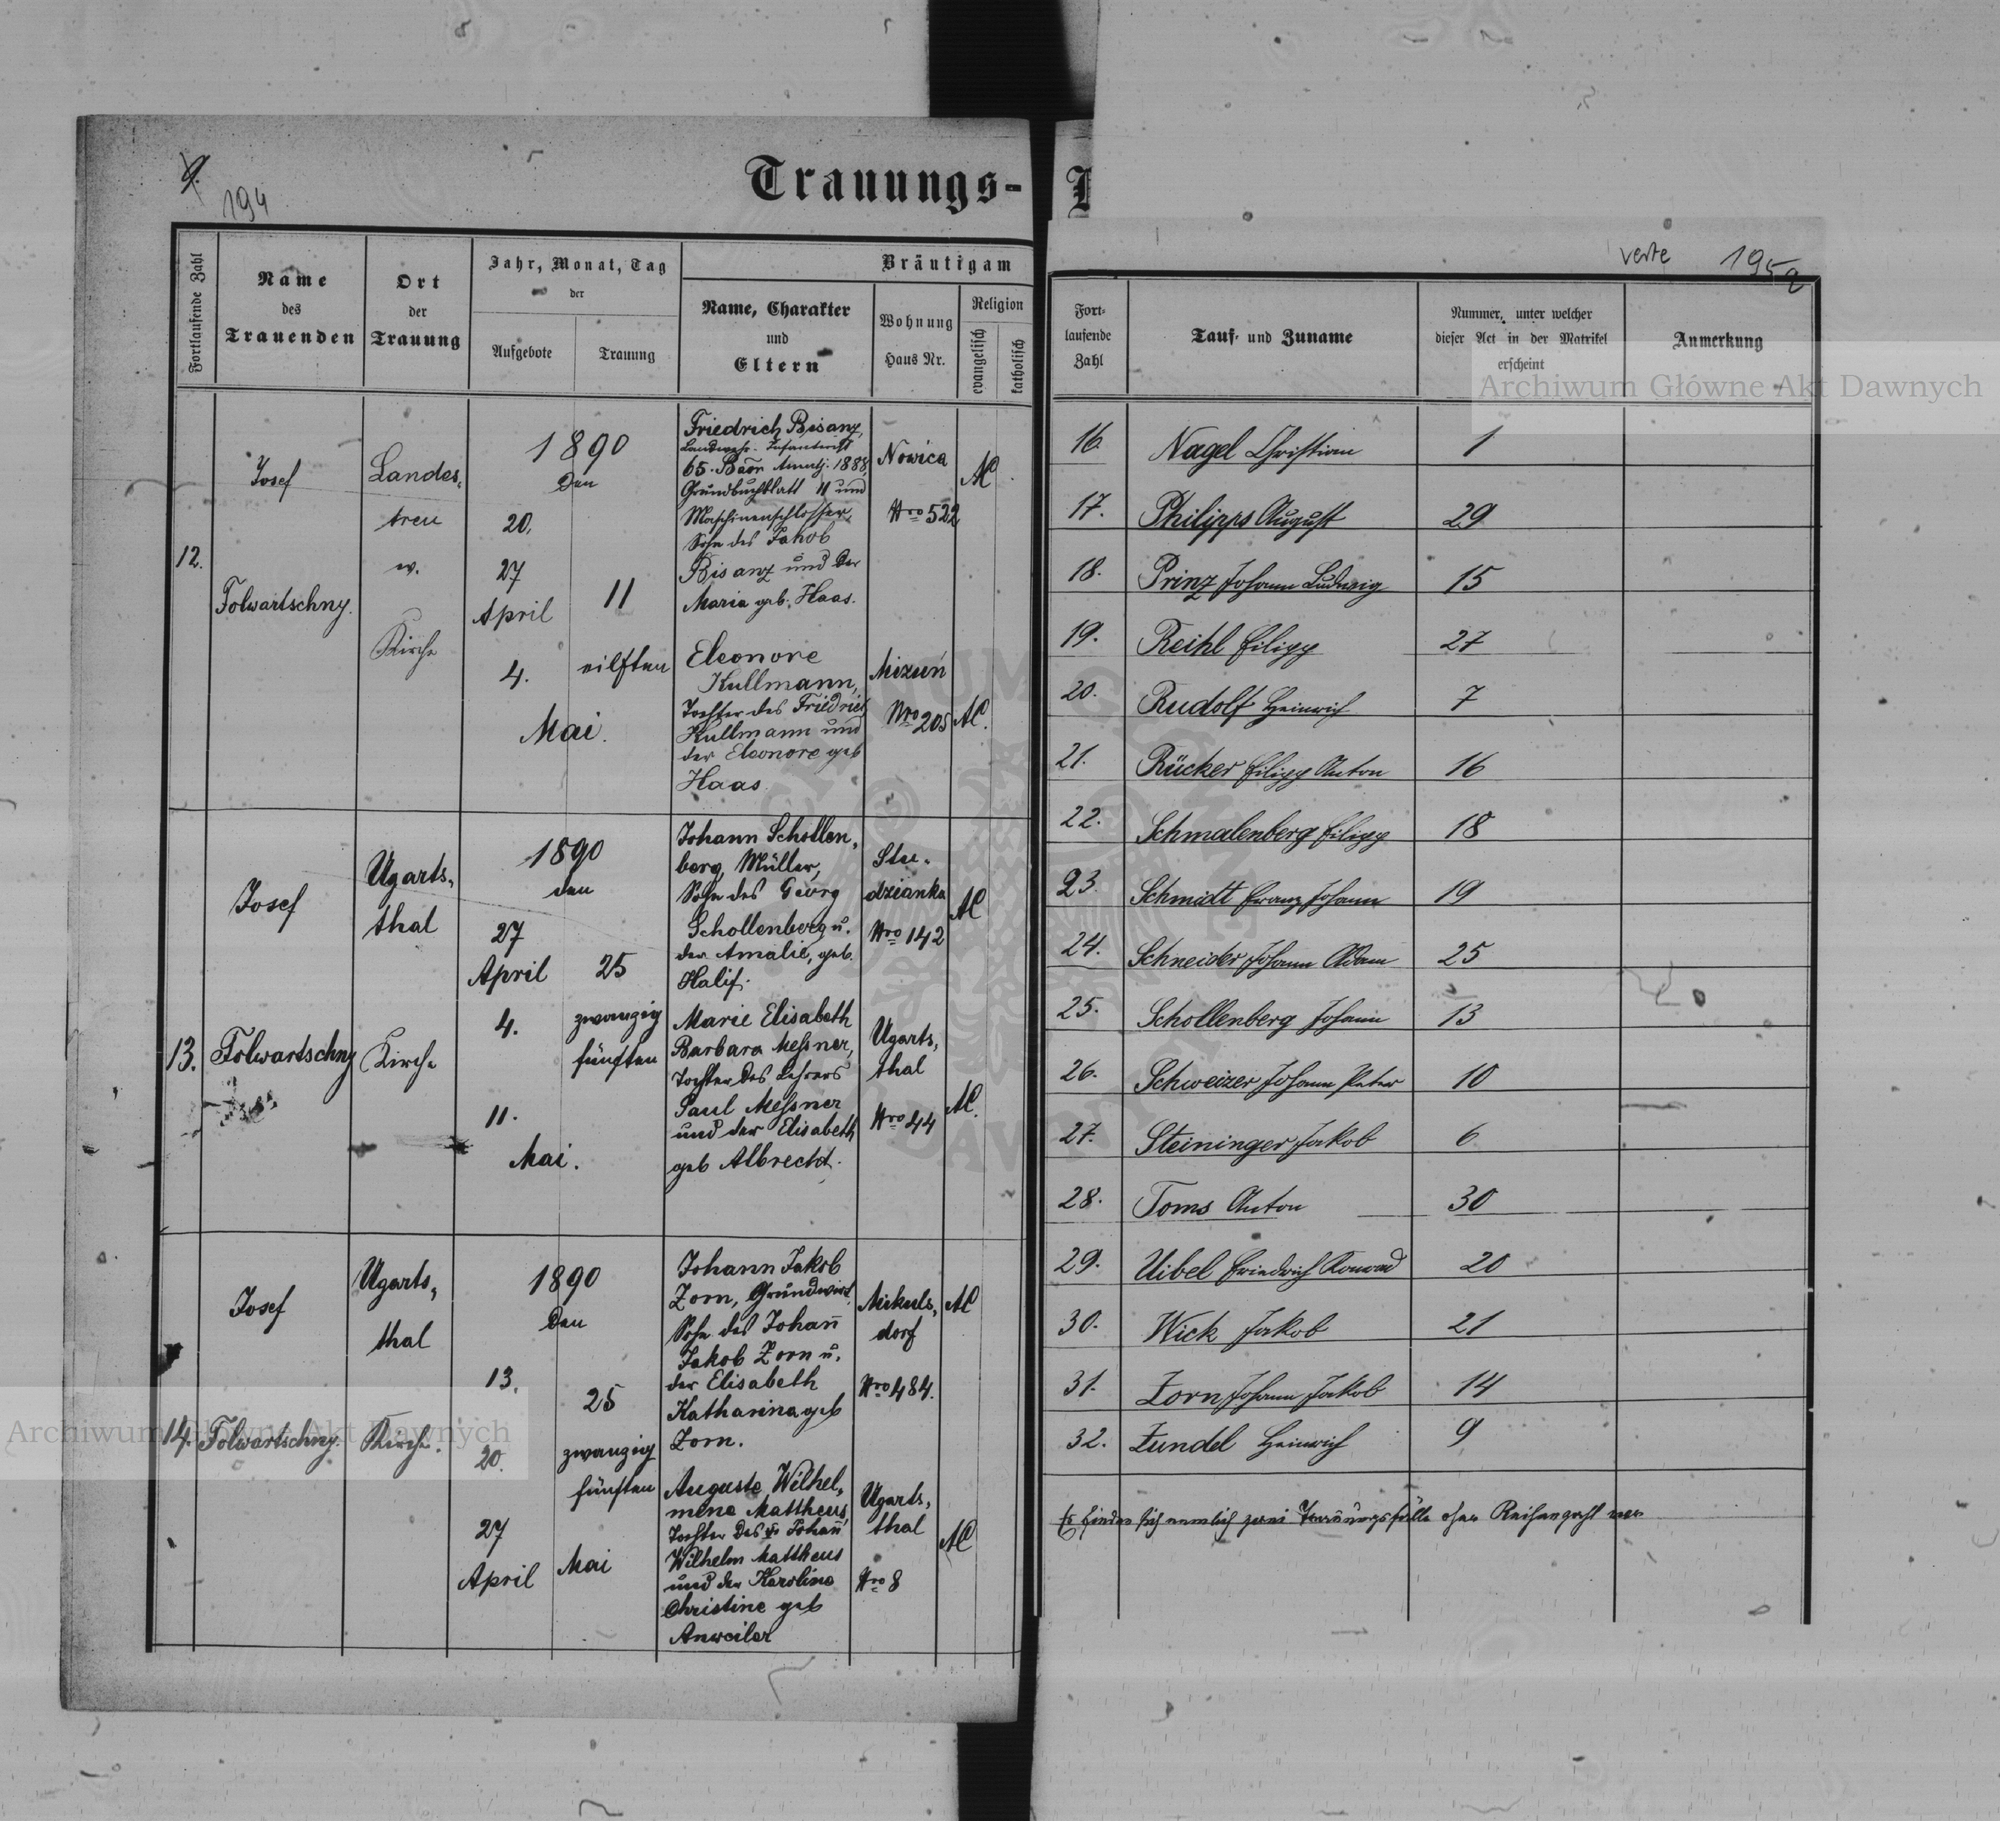 9.
194
Trauungs-
Fortlaufende Zahl
Name
des
Trauenden
Ort
der
Trauung
Jahr, Monat, Tag
der
Aufgebote
Trauung
Bräutigam
Name, Charakter
und
Eltern
Wohnung
Haus Nr.
Religion
evangelisch
katholisch
12.
Josef
Folwartschny.
Landes-
treu
ev.
Kirche
1890
Den
20.
27
April
4.
Mai.
11
eilften
Friedrich Bisanz,
Landwehr-Infanterist
65. Baon Assntj. 1888,
Grundbuchblatt 11 und
Maschinenschlosser,
Sohn des Jakob
Bisanz und der
Maria geb. Haas.
Nowica
Nro 522
AC
Eleonore
Kullmann,
Tochter des Friedrich
Kullmann und
der Eleonore geb
Haas
Mizuń
Nro 205
AC.
13.
Josef
Folwartschny
Ugarts-
thal
Kirche
1890
den
27
April
4.
11.
Mai.
25
zwanzig
fünften
Johann Schollen-
berg, Müller,
Sohn des Georg
Schollenberg u.
der Amalie, geb.
Halif.
Stu-
dzianka
Nro 142
AC
Marie Elisabeth
Barbara Messner,
Tochter des Lehrers
Paul Messner
und der Elisabeth
geb Albrecht.
Ugarts-
thal
Nro 44
AC.
14.
Josef
Folwartschny.
Ugarts-
thal
Kirche.
1890
Den
13.
20.
27
April
25
zwanzig
fünften
Mai
Johann Jakob
Zorn, Grundwirt,
Sohn des Johann
Jakob Zorn u.
der Elisabeth
Katharina geb
Zorn.
Mikuls-
dorf
Nro 484.
AC
Auguste Wilhel-
mine Mattheus
Tochter des Johann
Wilhelm Mattheus
und der Karoline
Christine geb
Anweiler
Ugarts-
thal
Nro 8
AC
verte 195a
Fort-
laufende
Zahl
Tauf- und Zuname
Nummer, unter welcher
dieser Act in der Matrikel
erscheint
Anmerkung
16. Nagel Christian 1
17. Philipps August 29
18. Prinz Johann Ludwig 15
19. Reihl Filipp 27
20. Rudolf Heinrich 7
21. Rücker Filipp Anton 16
22. Schmalenberg Filipp 18
23. Schmidt Franz Johann 19
24. Schneider Johann Adam 25
25. Schollenberg Johann 13
26. Schweizer Johann Peter 10
27. Steininger Jakob 6
28. Toms Anton 30
29. Uibel Friedrich Konrad 20
30. Wick Jakob 21
31. Zorn Johann Jakob 14
32. Zundel Heinrich 9
Es finden sich nemlich zwei Trauungsfälle ohne Reihenzahl vor
Archiwum Główne Akt Dawnych
Archiwum Główne Akt Dawnych